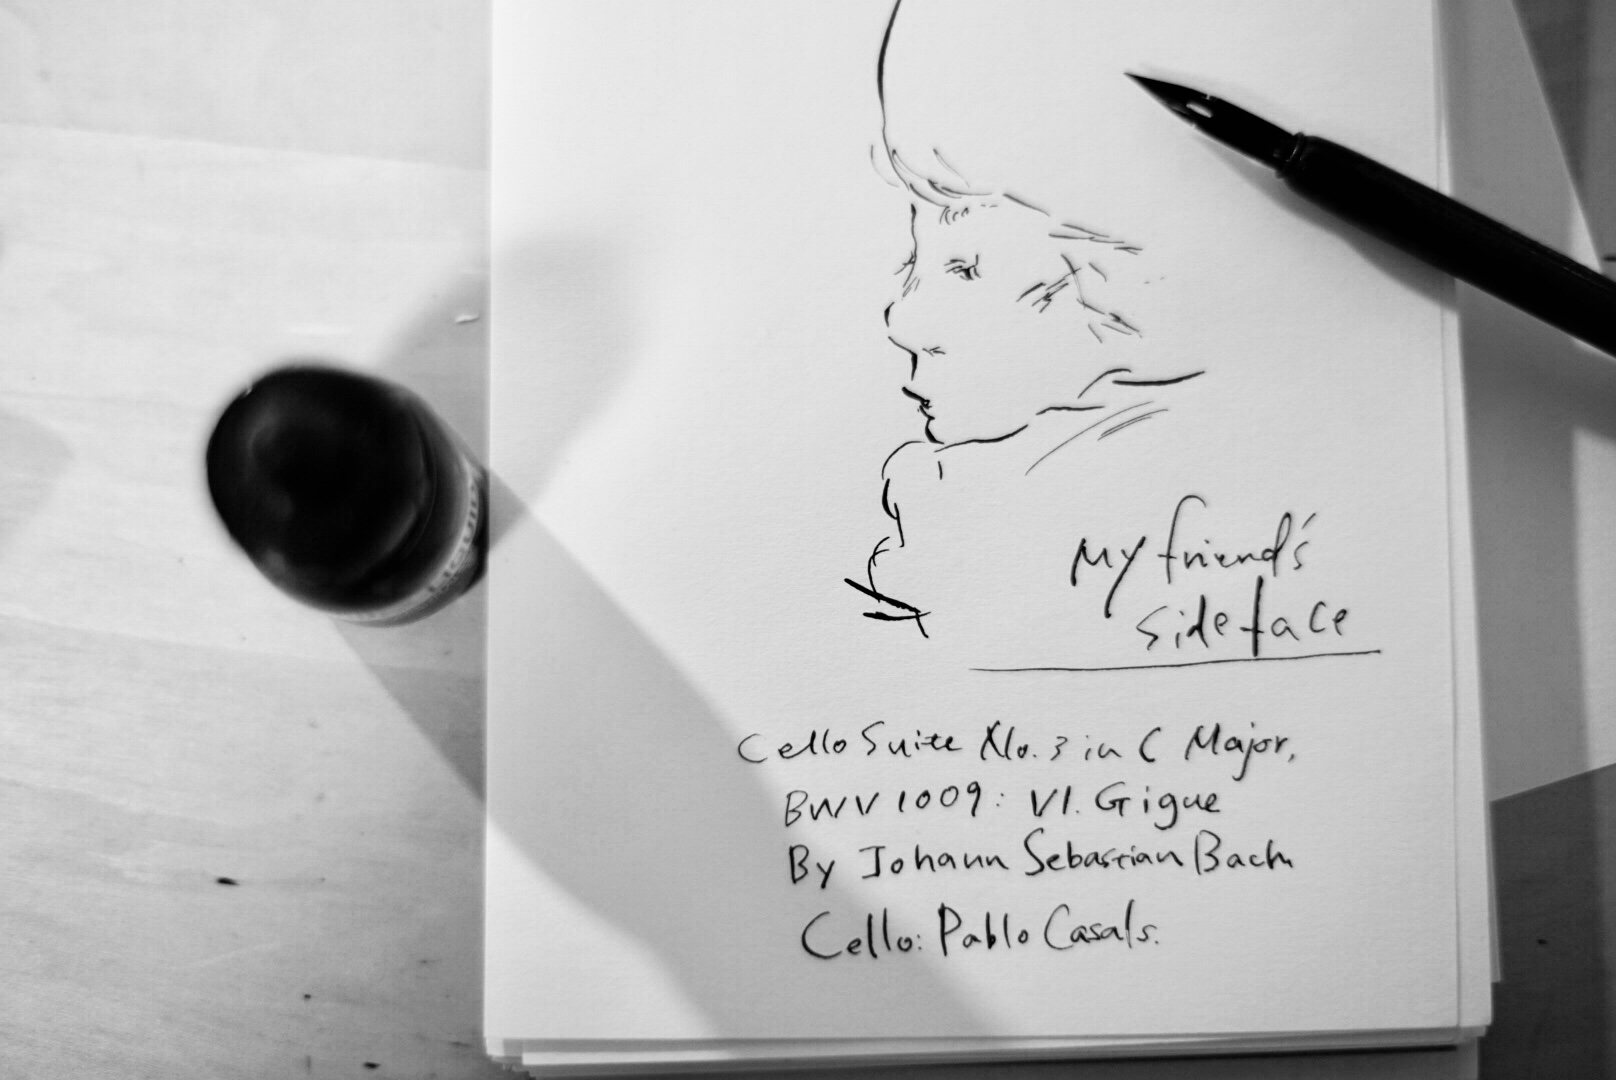 My friend's
sideface
Cello Suite No. 3 in C Major,
BWV 1009: VI. Gigue
By Johann Sebastian Bach
Cello: Pablo Casals.